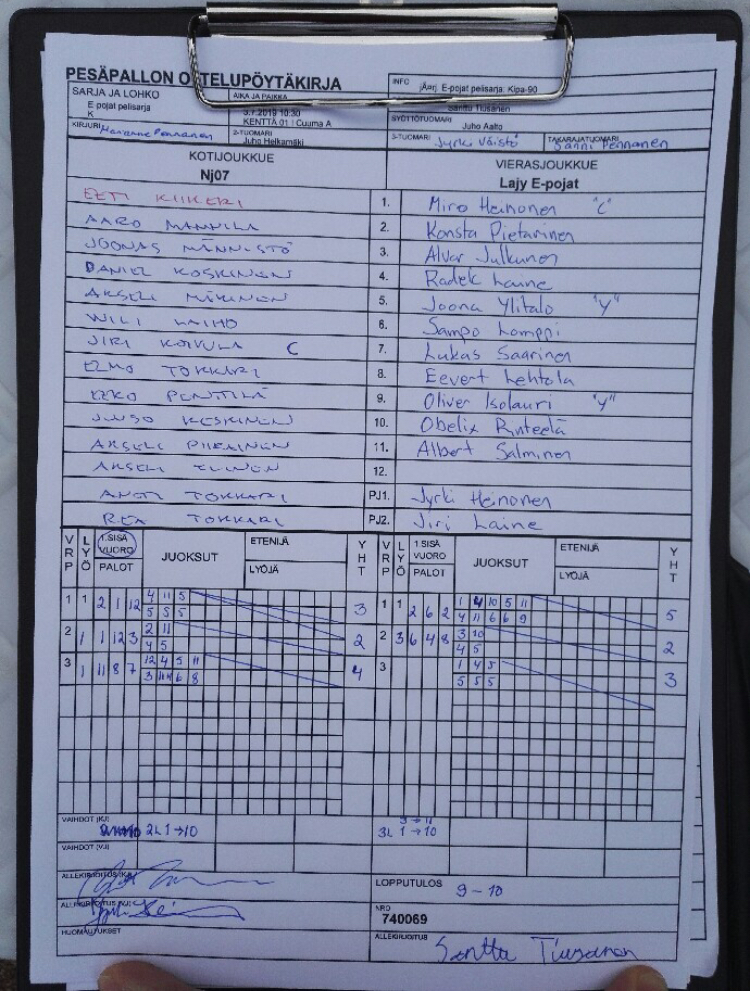 PESÄPALLON OTTELUPÖYTÄKIRJA
INFO jÄärj E-pojat pelisarja: Kipa-90
SARJA JA LOHKO
E pojat pelisarja
K
AIKA JA PAIKKA
3.7.2019 10:30
KENTTÄ 01 | Cuuma A
Santtu Tiusanen
SYÖTTÖTUOMARI Juho Aalto
KIRJURI Marianne Pennanen
2-TUOMARI
Juho Heikamäki
3-TUOMARI Jyrki Väistö
TAKARAJATUOMARI
Sanni Pennanen
KOTIJOUKKUE
Nj07
VIERASJOUKKUE
Lajy E-pojat
EETI KIIKERI 1. Miro Heinonen "C"
AARO MANNILA 2. Konsta Pietarinen
JOONAS MÄNNISTÖ 3. Alvar Julkunen
DANIEL KOSKINEN 4. Radek Laine
AKSELI MÄKINEN 5. Joona Ylitalo "Y"
WILI LAIHO 6. Sampo Lamppi
JIRI KOIVULA C 7. Lukas Saarinen
ELMO TOKKARI 8. Eevert Lehtola
EKKO PENTTILÄ 9. Oliver Isolauri "Y"
JUUSO KESKINEN 10. Obelix Rinteelä
AKSELI PIIRAINEN 11. Albert Salminen
AKSELI 12.
ANTI TOKKARI PJ1. Jyrki Heinonen
REA TOKKARI PJ2. Jiri Laine
VRP LYÖ 1.SISÄ VUORO PALOT JUOKSUT ETENIJÄ LYÖJÄ YHT VRP LYÖ 1.SISÄ VUORO PALOT JUOKSUT ETENIJÄ LYÖJÄ YHT
1 1 2 1 12 4 11 5 3 1 1 2 6 2 1 4 10 5 11 5
5 5 5 4 11 6 6 9
2 1 1 12 3 2 11 2 2 3 6 4 8 3 10 2
4 5 4 5
3 1 11 8 7 12 4 5 11 4 3 1 4 5 3
3 11 6 8 5 5 5
VAIHDOT (KJ)
2L 1→10
3→11
3L 1→10
VAIHDOT (VJ)
ALLEKIRJOITUS (KJ)
LOPPUTULOS 9-10
ALLEKIRJOITUS (VJ)
NRO
740069
HUOMAUTUKSET
ALLEKIRJOITUS
Santtu Tiusanen